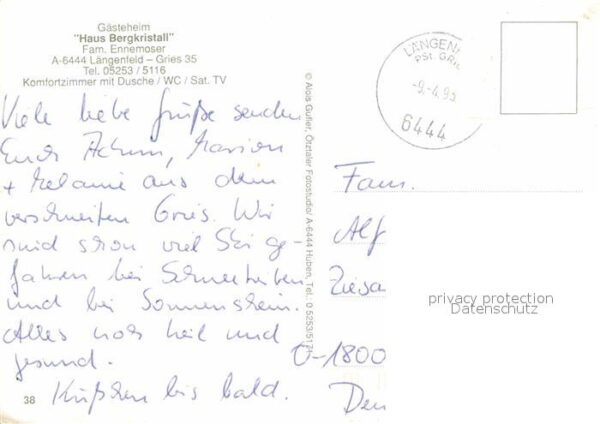 Gästeheim
"Haus Bergkristall"
Fam. Ennemoser
A-6444 Längenfeld – Gries 35
Tel. 05253 / 5116
Komfortzimmer mit Dusche / WC / Sat. TV
Viele liebe Grüße senden
Euch Achim, Marion
+ Melanie aus dem
verschneiten Gries. Wir
sind schon viel Ski ge-
fahren bei Schneetreiben
und bei Sonnenschein.
Alles noch heil und
gesund.
Küßchen bis bald.
38
© Alois Gufler, Ötztaler Fotostudio/ A-6444 Huben, Tel.: 0 5253/
LÄNGENF
PSt. GRIE
-9.-4.93
6444
Fam.
Alf
Ziesa
O-1800
Den
privacy protection
Datenschutz